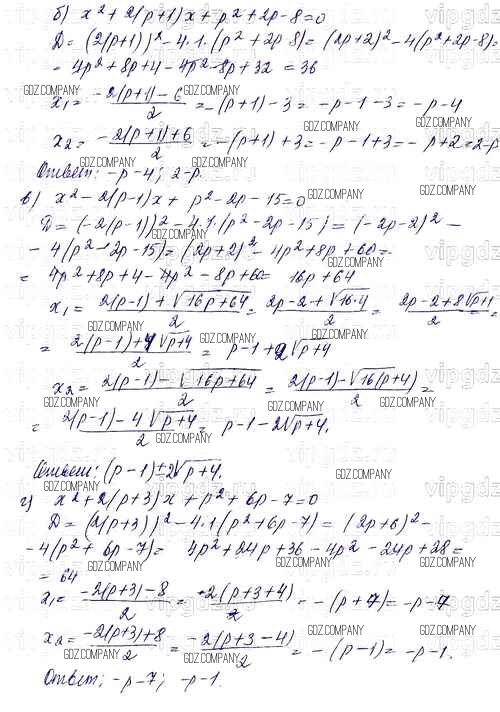 б) x² + 2(p+1)x + p² + 2p - 8 = 0
D = (2(p+1))² - 4·1·(p² + 2p - 8) = (2p+2)² - 4(p² + 2p - 8) =
= 4p² + 8p + 4 - 4p² - 8p + 32 = 36
x₁ = (-2(p+1) - 6)/2 = -(p+1) - 3 = -p - 1 - 3 = -p - 4
x₂ = (-2(p+1) + 6)/2 = -(p+1) + 3 = -p - 1 + 3 = -p + 2 = 2-p
Ответ: -p-4; 2-p.
в) x² - 2(p-1)x + p² - 2p - 15 = 0
D = (-2(p-1))² - 4·1·(p² - 2p - 15) = (-2p-2)² -
- 4(p² - 2p - 15) = (2p+2)² - 4p² + 8p + 60 =
= 4p² + 8p + 4 - 4p² - 8p + 60 = 16p + 64
x₁ = (2(p-1) + √(16p+64))/2 = (2p-2+√(16·4))/2 = (2p-2+2√(p+1))/2 =
= (2(p-1) + 4√(p+4))/2 = p - 1 + 2√(p+4)
x₂ = (2(p-1) - √(16p+64))/2 = (2(p-1) - √(16(p+4)))/2 =
= (2(p-1) - 4√(p+4))/2 = p - 1 - 2√(p+4).
Ответ: (p-1) ± 2√(p+4).
г) x² + 2(p+3)x + p² + 6p - 7 = 0
D = (2(p+3))² - 4·1(p² + 6p - 7) = (2p+6)² -
- 4(p² + 6p - 7) = 4p² + 24p + 36 - 4p² - 24p + 28 =
= 64
x₁ = (-2(p+3) - 8)/2 = (-2(p+3+4))/2 = -(p+7) = -p-7
x₂ = (-2(p+3) + 8)/2 = (-2(p+3-4))/2 = -(p-1) = -p-1.
Ответ: -p-7; -p-1.
GDZ.COMPANY
vipgdz.ru